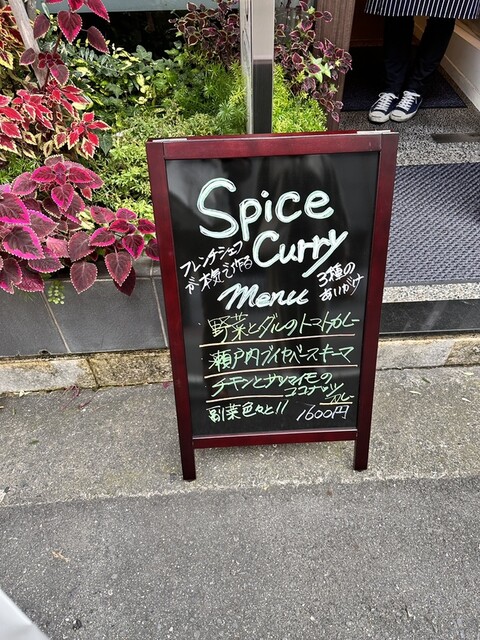 Spice
Curry
フレンチシェフ
が本気で作る
3種の
あいがけ
menu
野菜とダルのトマトカレー
瀬戸内ブイヤベースキーマ
チキンとサツマイモの
ココナッツ
カレー
副菜色々と!!
1600円